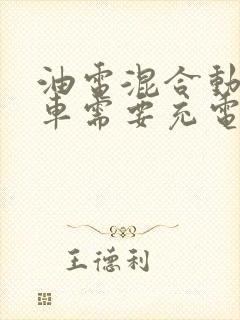 油電混合動
車需要充電
王德利